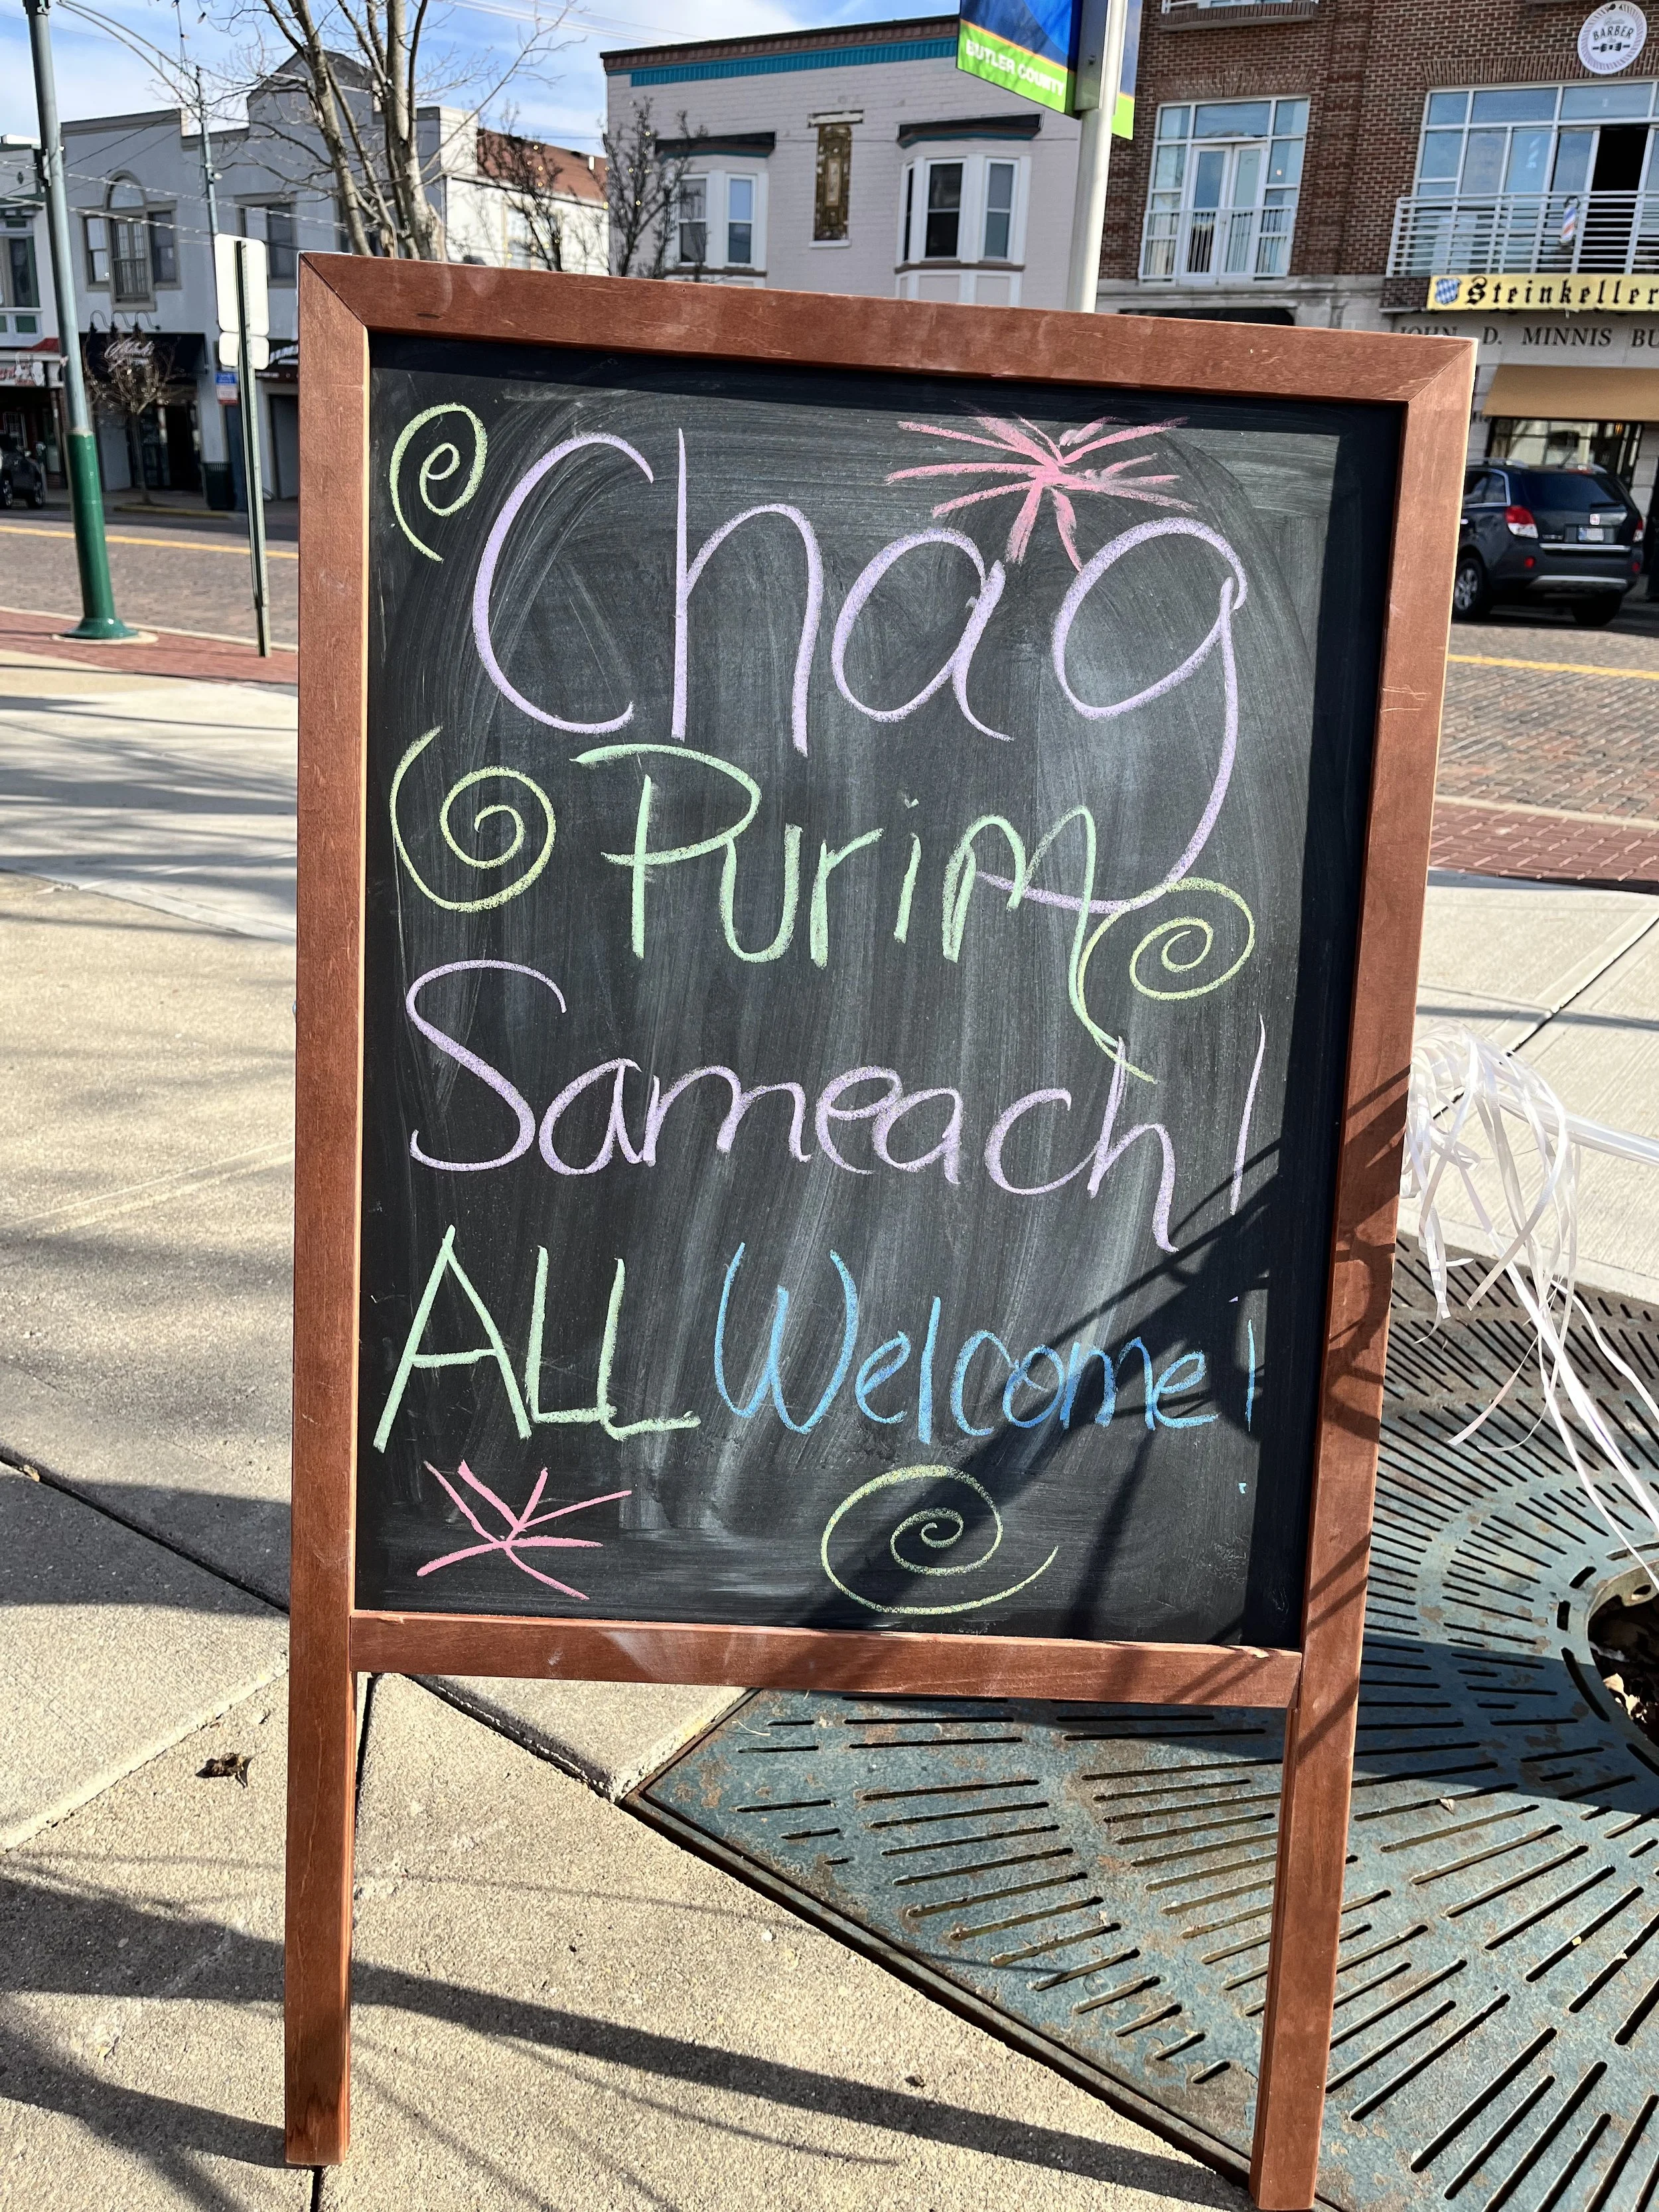 BUTLER COUNTY
BARBER
Steinkeller
JOHN D. MINNIS BU
Chag
Purim
Sameach!
ALL Welcome!